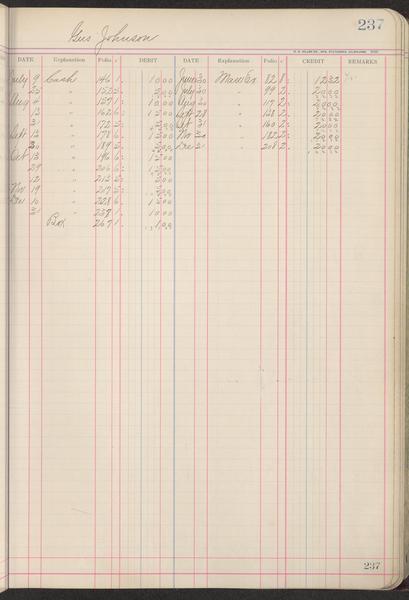 237
Gus Johnson
DATE Explanation Folio c DEBIT DATE Explanation Folio c CREDIT REMARKS
July 9 Cash 146 1 10 00 June 30 82 8 12 32
25 " 153 5 00 July 30 " 99 2 20 00
Aug 4 " 157 1 10 00 Aug 30 " 117 2 20 00
13 " 162 6 15 00 28 " 138 2 20 00
31 " 173 5 00 Oct 31 " 160 2 20 00
13 " 178 15 00 Nov 30 " 182 2 20 00
30 " 189 5 00 Dec 31 " 208 2 20 00
Oct 13 " 196 6 15 00
29 " 206 6 15 00
" 213 5 00
Nov 19 " 217 5 00
Dec 10 " 228 6 15 00
31 " 239 1 10 00
Box 267 1 1 00
237